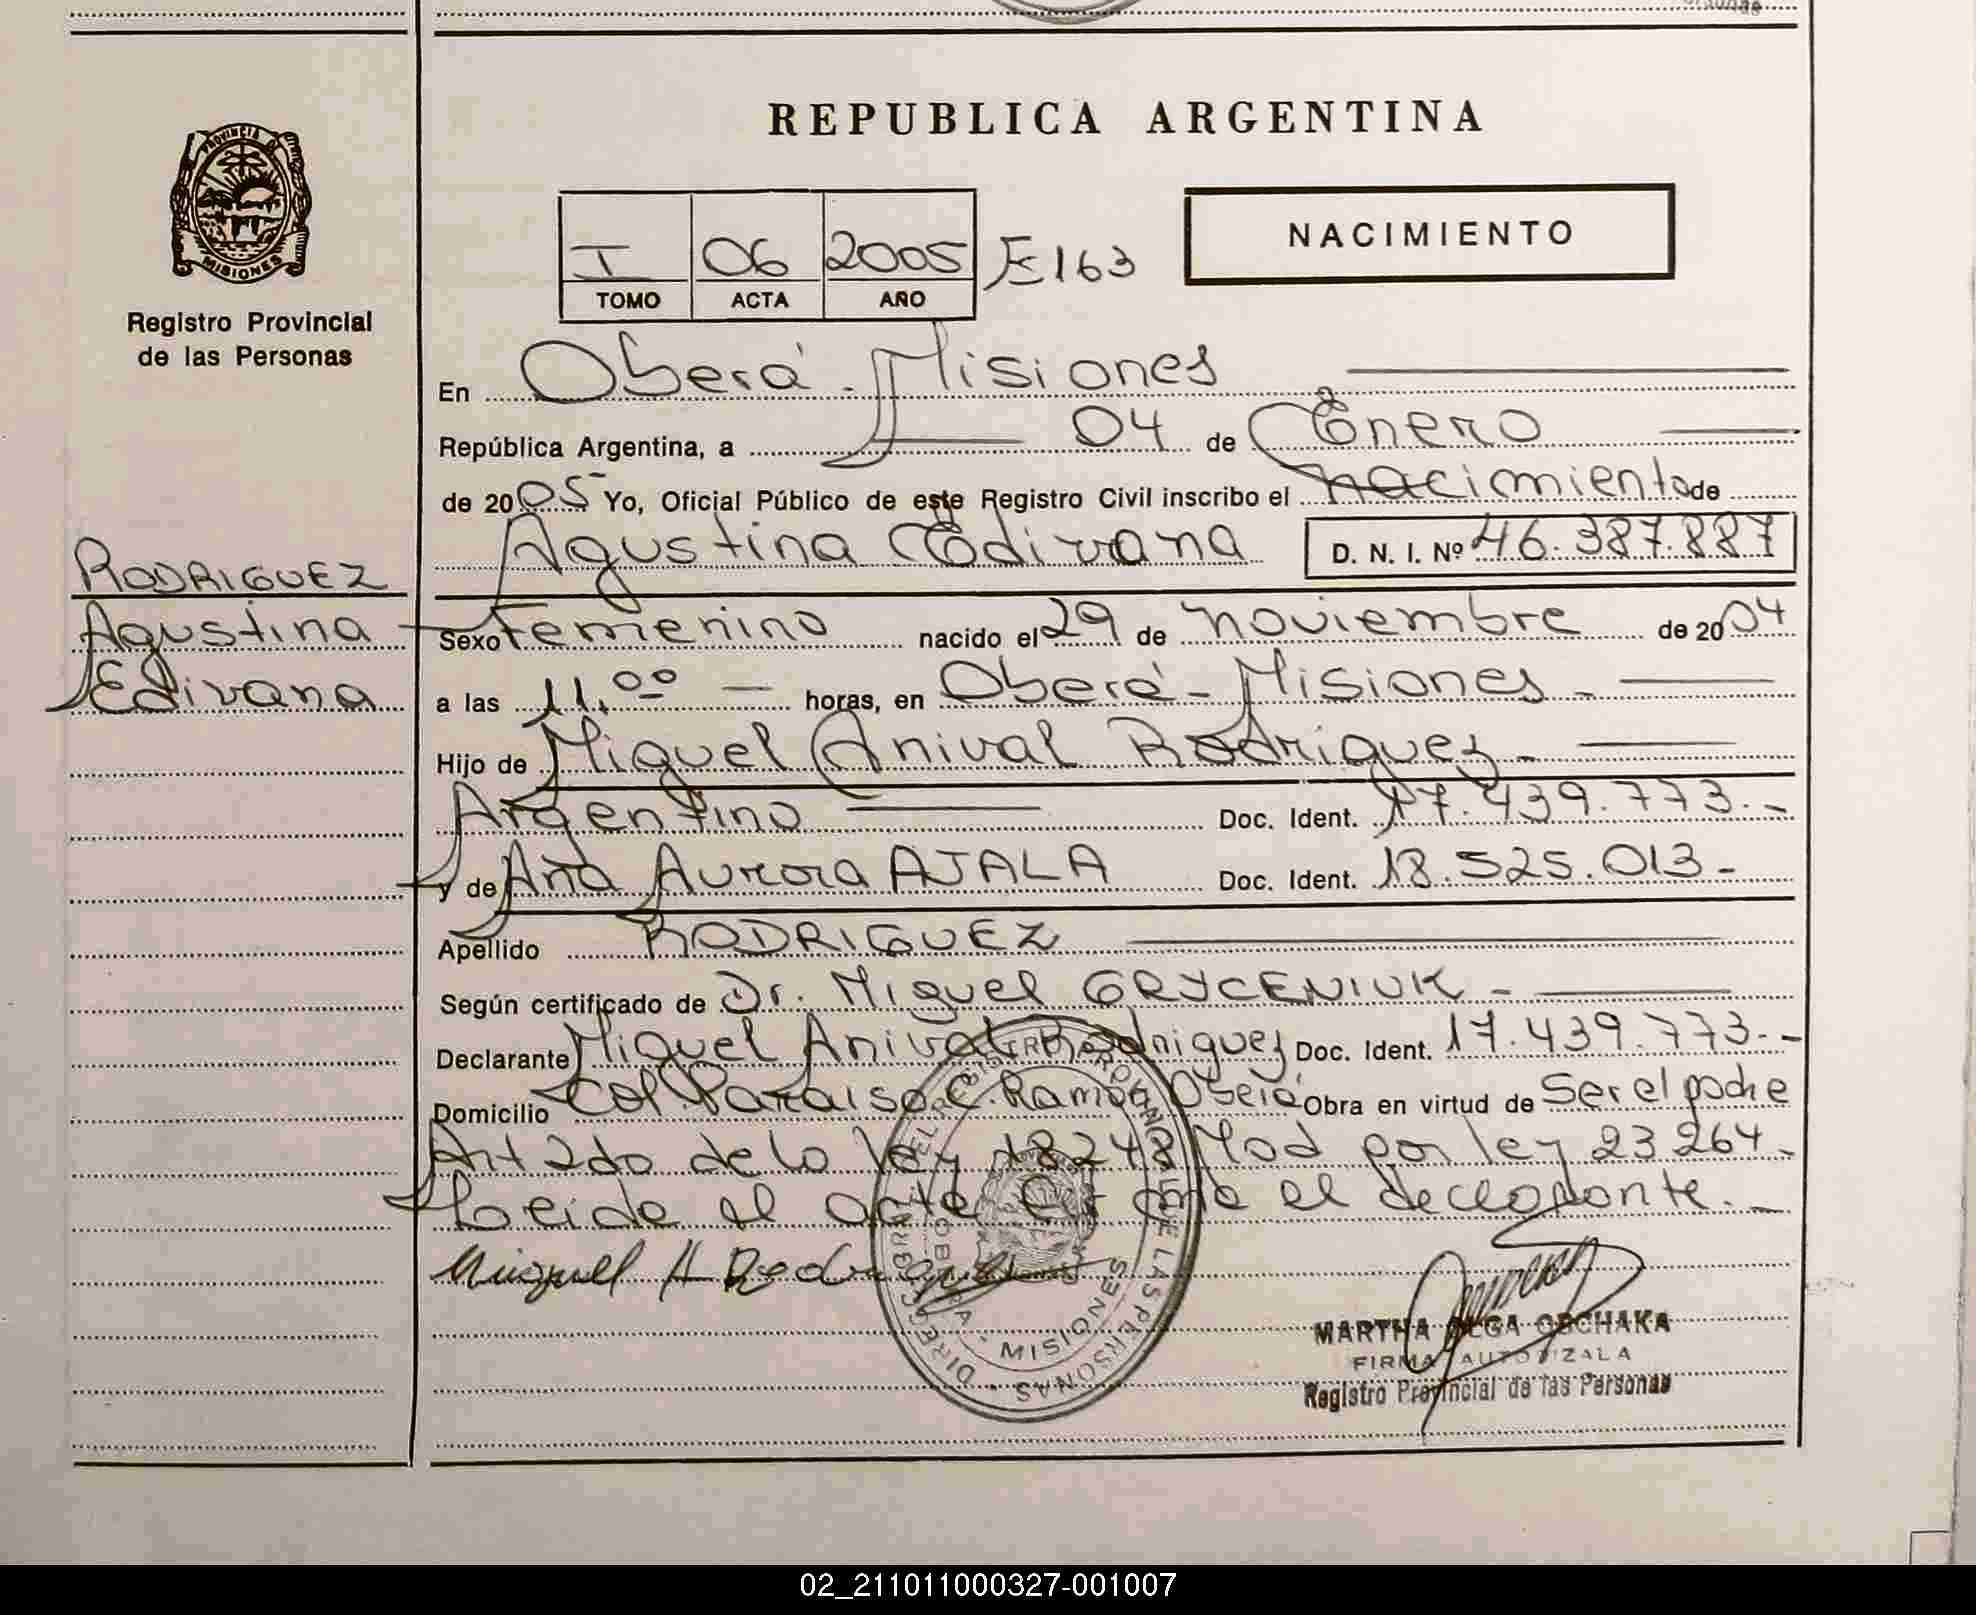 REPUBLICA ARGENTINA
PROVINCIA DE
MISIONES
Registro Provincial
de las Personas
I 06 2005 E163
TOMO ACTA AÑO
NACIMIENTO
En Oberá - Misiones
República Argentina, a 04 de Enero
de 2005 Yo, Oficial Público de este Registro Civil inscribo el nacimiento de
Agustina Edivana D. N. I. Nº 46.387.887
RODRIGUEZ
Agustina
Edivana
Sexo Femenino nacido el 29 de noviembre de 2004
a las 11,00 horas, en Oberá - Misiones -
Hijo de Miguel Anival Rodriguez -
Argentino Doc. Ident. 17.439.773.-
y de Ana Aurora AJALA Doc. Ident. 18.525.013-
Apellido RODRIGUEZ
Según certificado de Dr. Miguel GRYCENIUK -
Declarante Miguel Anival Rodriguez Doc. Ident. 17.439.773.-
Domicilio Col. Paraiso C. Ramón Oberá Obra en virtud de Ser el padre
Art 2do de la ley 18248 Mod por ley 23264-
Leida el acta la el declarante.-
Miguel A Rodriguez
DIRECC. GRAL. DEL REGISTRO PROVINCIAL DE LAS PERSONAS
MISIONES
MARTHA OLGA OBCHAKA
FIRMA AUTORIZADA
Registro Provincial de las Personas
02_211011000327-001007